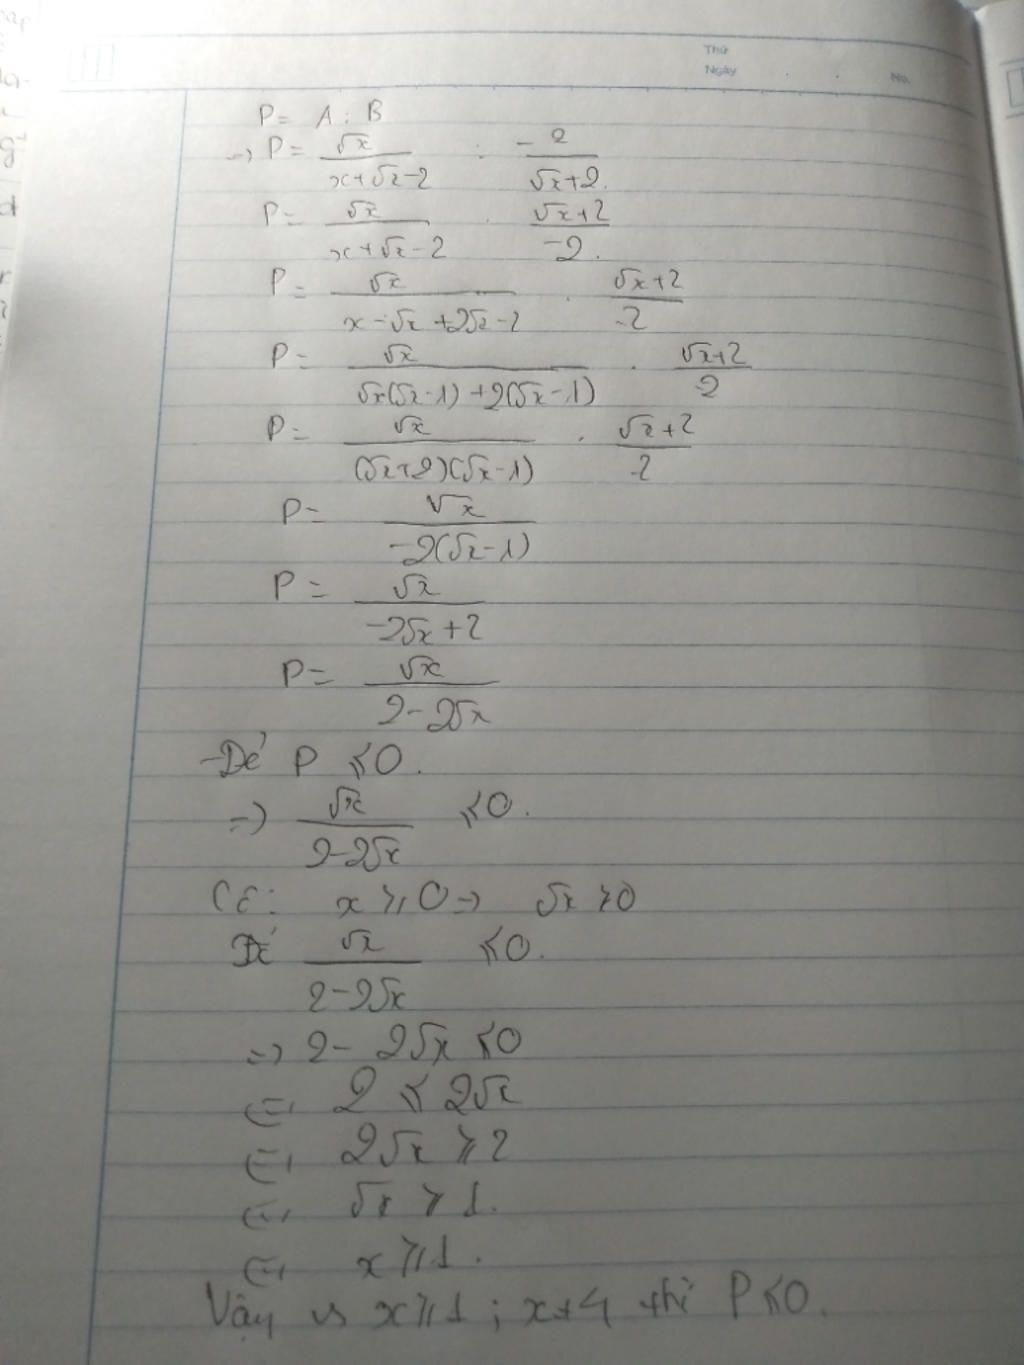 Thứ
Ngày No.
P = A : B
=> P = √x / (x+√x-2) : -2 / (√x+2).
P = √x / (x+√x-2) . (√x+2) / -2.
P = √x / (x-√x+2√x-2) . (√x+2) / -2
P = √x / (√x(√x-1)+2(√x-1)) . (√x+2) / -2
P = √x / ((√x+2)(√x-1)) . (√x+2) / -2
P = √x / (-2(√x-1))
P = √x / (-2√x+2)
P = √x / (2-2√x)
-Để P ≤ 0.
=> √x / (2-2√x) ≤ 0.
x ≥ 0 => √x ≥ 0
Để √x / (2-2√x) ≤ 0.
=> 2 - 2√x ≤ 0
<=> 2 ≤ 2√x
<=> 2√x ≥ 2
<=> √x ≥ 1.
<=> x ≥ 1.
Vậy vs x ≥ 1 ; x ≠ 4 thì P ≤ 0.